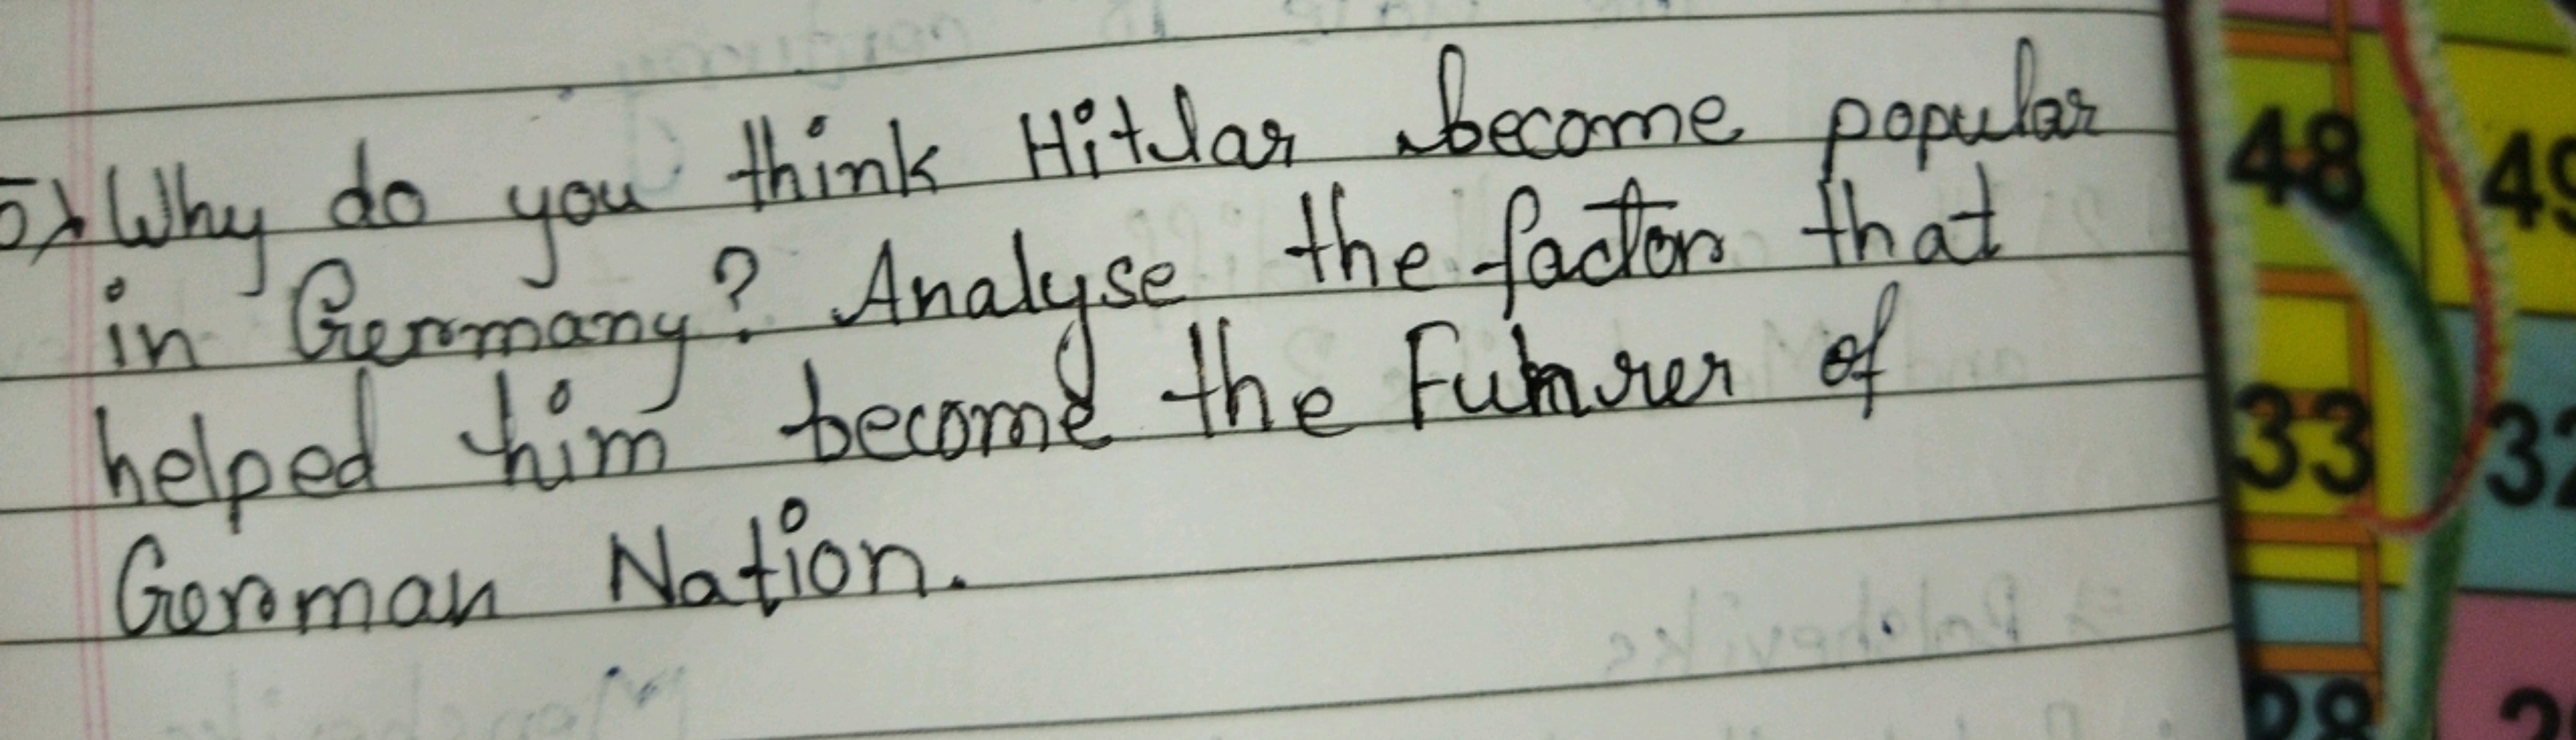 5) Why do you think Hitlar become popular
in Germany? Analyse the factors that
helped him become the Fuhrer of
German Nation.
48 49
33 32
28